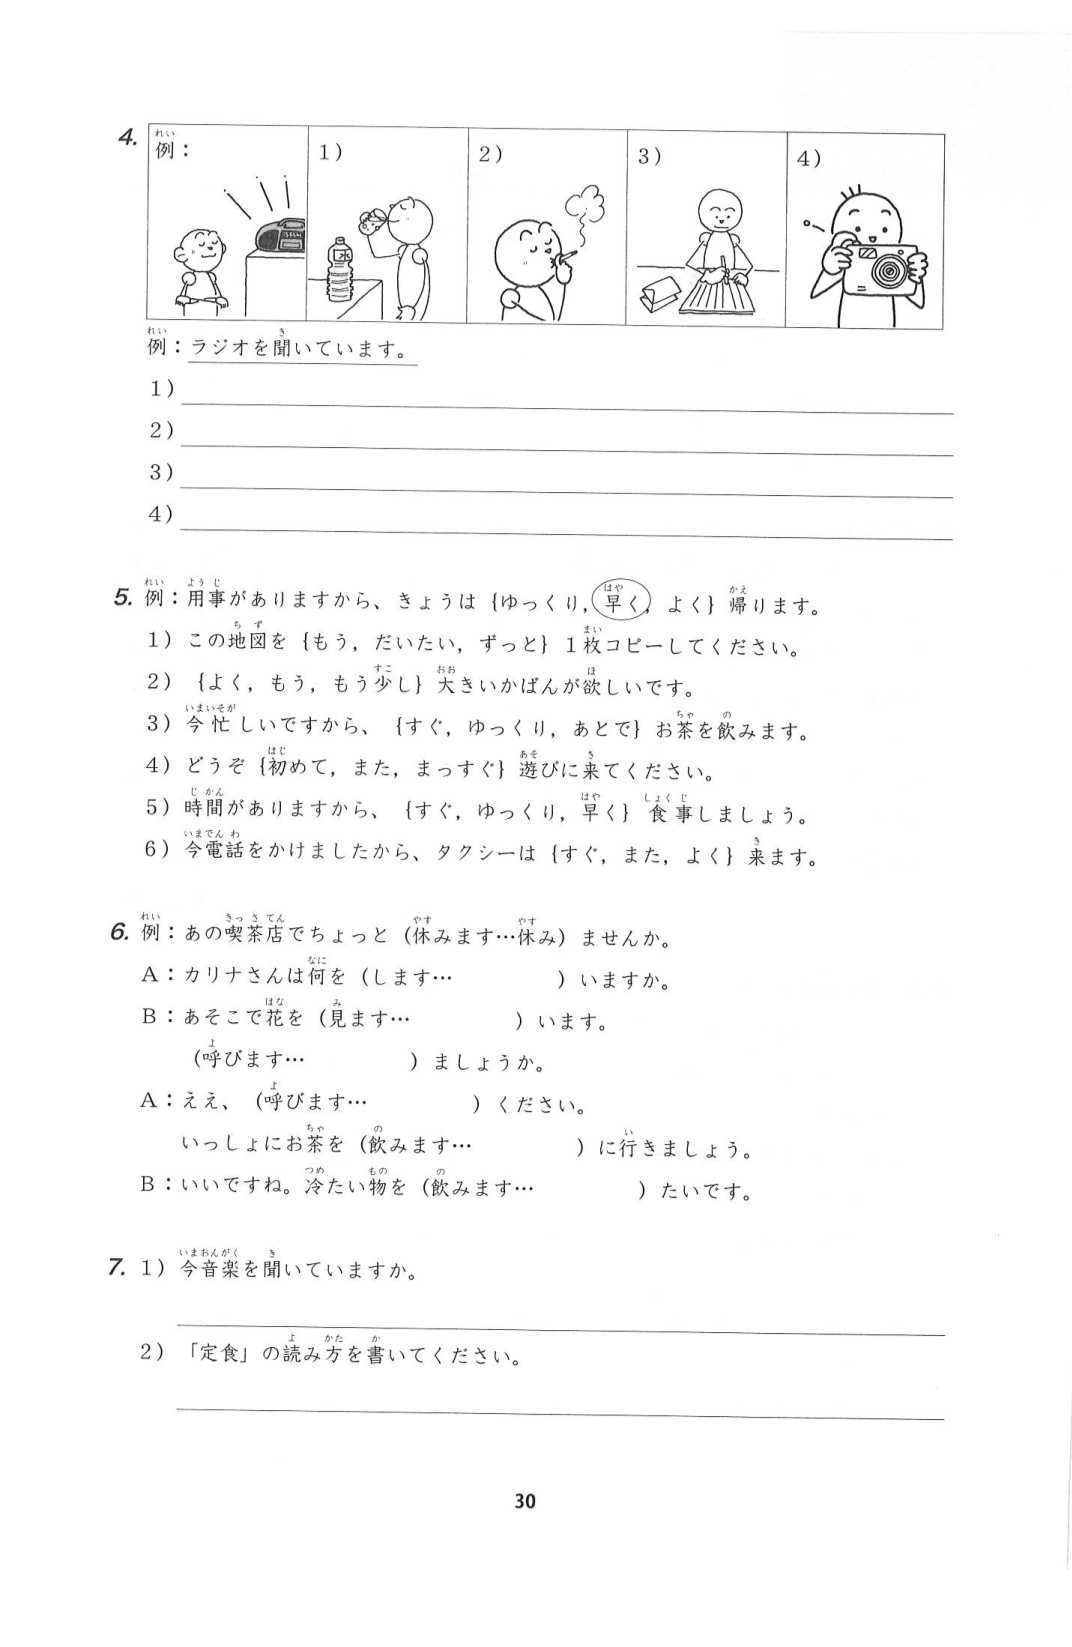 4. 例： 1） 2） 3） 4）
水
例：ラジオを聞いています。
1）
2）
3）
4）
5. 例：用事がありますから、きょうは｛ゆっくり，早く，よく｝帰ります。
1）この地図を｛もう，だいたい，ずっと｝1枚コピーしてください。
2）｛よく，もう，もう少し｝大きいかばんが欲しいです。
3）今忙しいですから、｛すぐ，ゆっくり，あとで｝お茶を飲みます。
4）どうぞ｛初めて，また，まっすぐ｝遊びに来てください。
5）時間がありますから、｛すぐ，ゆっくり，早く｝食事しましょう。
6）今電話をかけましたから、タクシーは｛すぐ，また，よく｝来ます。
6. 例：あの喫茶店でちょっと（休みます…休み）ませんか。
A：カリナさんは何を（します…　　　　）いますか。
B：あそこで花を（見ます…　　　　）います。
（呼びます…　　　　）ましょうか。
A：ええ、（呼びます…　　　　）ください。
いっしょにお茶を（飲みます…　　　　）に行きましょう。
B：いいですね。冷たい物を（飲みます…　　　　）たいです。
7. 1）今音楽を聞いていますか。
2）「定食」の読み方を書いてください。
30